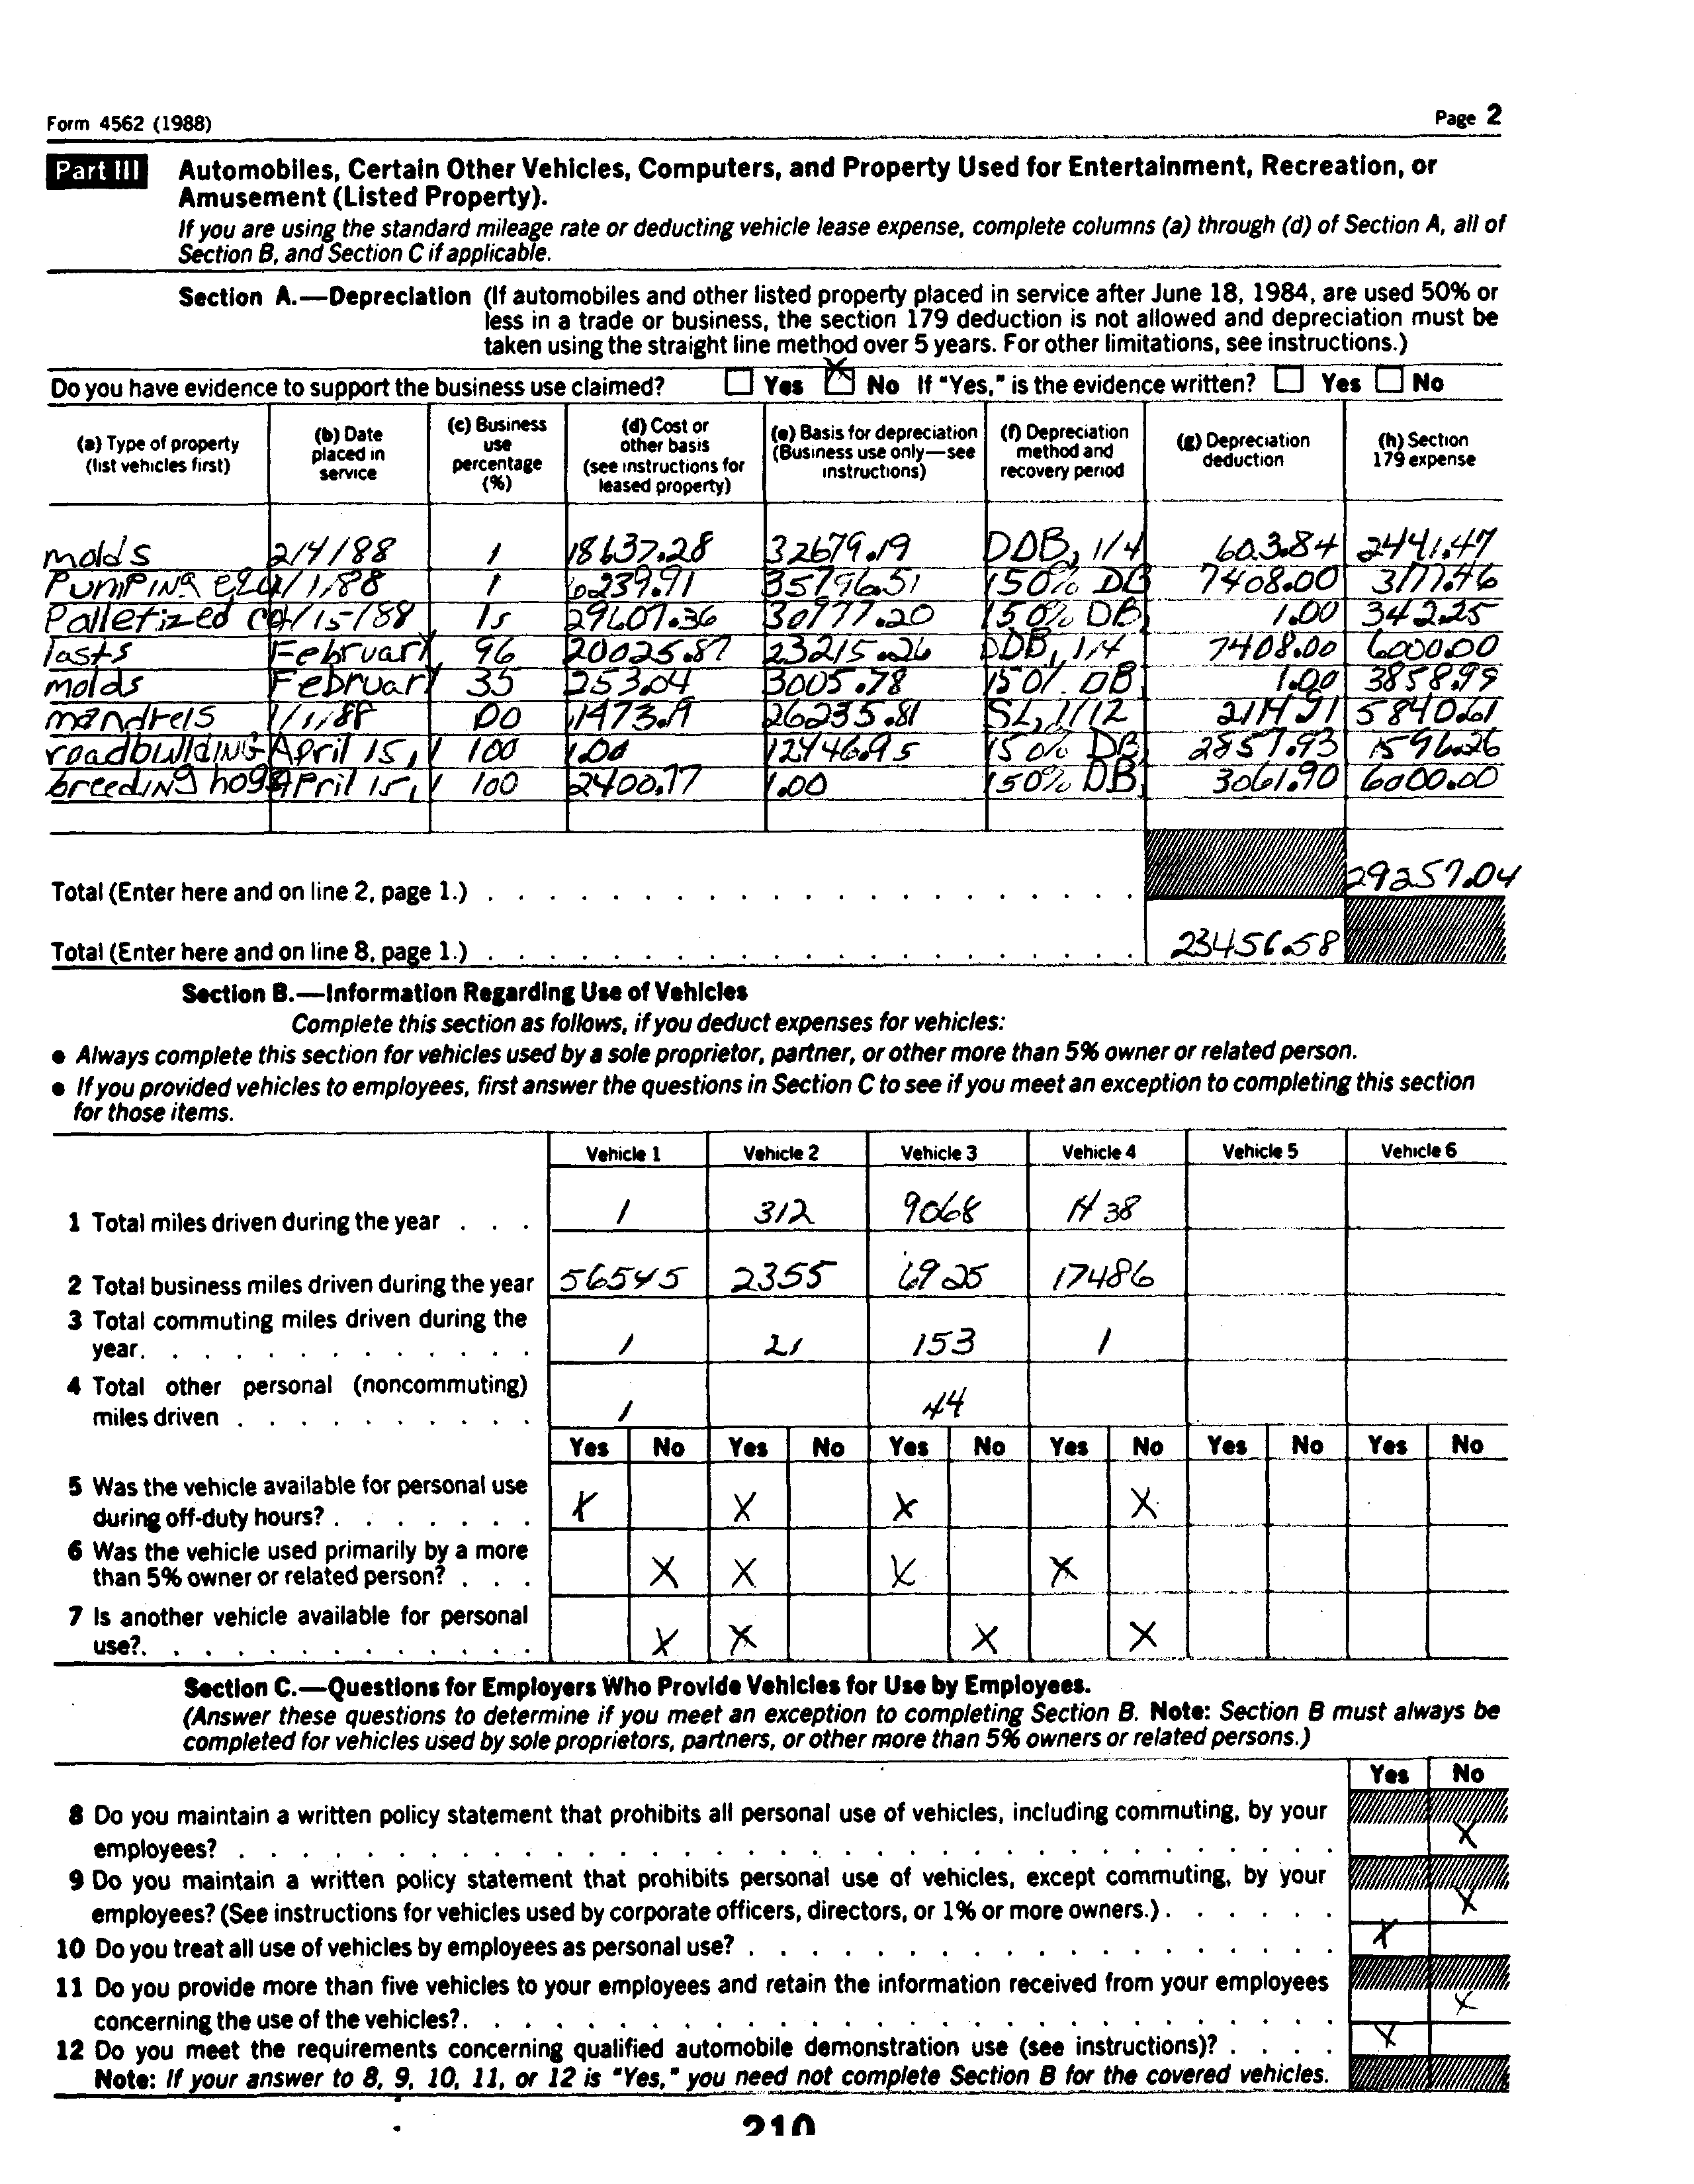 Form 4562 (1988) Page 2
Part III Automobiles, Certain Other Vehicles, Computers, and Property Used for Entertainment, Recreation, or
Amusement (Listed Property).
If you are using the standard mileage rate or deducting vehicle lease expense, complete columns (a) through (d) of Section A, all of
Section B, and Section C if applicable.
Section A.—Depreciation (If automobiles and other listed property placed in service after June 18, 1984, are used 50% or
less in a trade or business, the section 179 deduction is not allowed and depreciation must be
taken using the straight line method over 5 years. For other limitations, see instructions.)
Do you have evidence to support the business use claimed? Yes X No If "Yes," is the evidence written? Yes No
(a) Type of property (list vehicles first) (b) Date placed in service (c) Business use percentage (%) (d) Cost or other basis (see instructions for leased property) (e) Basis for depreciation (Business use only—see instructions) (f) Depreciation method and recovery period (g) Depreciation deduction (h) Section 179 expense
molds 2/4/88 1 18637.28 32679.19 DDB, 1/4 603.84 2441.47
Pumping 1/88 1 6239.91 35796.51 150% DB 7408.00 3177.46
Palletized 15/88 15 29607.36 30977.20 150% DB, 1.00 342.25
lasts February 96 20025.87 23215.26 DDB, 1/4 7408.00 6000.00
molds February 35 253.04 3005.78 150% DB, 1.00 3858.99
mandrels 1/1/88 00 1473.19 26235.81 SL, 1/12 2114.91 5840.61
roadbuilding April 15, 1 100 1.00 12746.95 150% DB, 2857.93 1596.26
breeding hogs April 15, 1 100 2400.77 1.00 150% DB, 3061.90 6000.00
Total (Enter here and on line 2, page 1.) 29257.04
Total (Enter here and on line 8, page 1.) 23456.58
Section B.—Information Regarding Use of Vehicles
Complete this section as follows, if you deduct expenses for vehicles:
● Always complete this section for vehicles used by a sole proprietor, partner, or other more than 5% owner or related person.
● If you provided vehicles to employees, first answer the questions in Section C to see if you meet an exception to completing this section
for those items.
Vehicle 1 Vehicle 2 Vehicle 3 Vehicle 4 Vehicle 5 Vehicle 6
1 Total miles driven during the year . . . 1 312 9068 1438
2 Total business miles driven during the year 56545 2355 6925 17486
3 Total commuting miles driven during the
year. 1 21 153 1
4 Total other personal (noncommuting)
miles driven 1 44
Yes No Yes No Yes No Yes No Yes No Yes No
5 Was the vehicle available for personal use
during off-duty hours? X X X X
6 Was the vehicle used primarily by a more
than 5% owner or related person? X X X X
7 Is another vehicle available for personal
use? X X X X
Section C.—Questions for Employers Who Provide Vehicles for Use by Employees.
(Answer these questions to determine if you meet an exception to completing Section B. Note: Section B must always be
completed for vehicles used by sole proprietors, partners, or other more than 5% owners or related persons.)
Yes No
8 Do you maintain a written policy statement that prohibits all personal use of vehicles, including commuting, by your
employees? X
9 Do you maintain a written policy statement that prohibits personal use of vehicles, except commuting, by your
employees? (See instructions for vehicles used by corporate officers, directors, or 1% or more owners.) X
10 Do you treat all use of vehicles by employees as personal use? X
11 Do you provide more than five vehicles to your employees and retain the information received from your employees
concerning the use of the vehicles? X
12 Do you meet the requirements concerning qualified automobile demonstration use (see instructions)? X
Note: If your answer to 8, 9, 10, 11, or 12 is "Yes," you need not complete Section B for the covered vehicles.
210